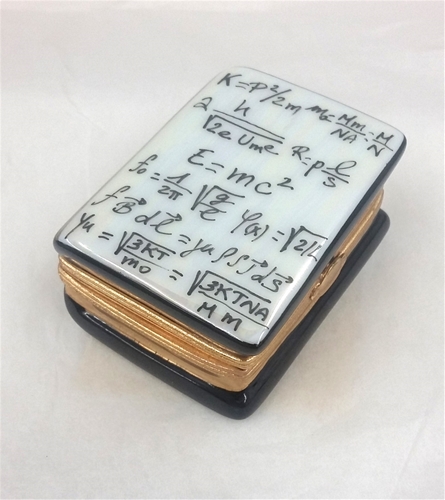 K=P²/2m m₀=Mm/NA=M/N
2 h/√2e Ume R=ρ l/S
E=mc²
f₀=1/2π √g/l Ψ(x)=√2/L
∮B⃗dl⃗=μ∫∫J⃗dS⃗
=√3KT/mo=√3KTNA/Mm